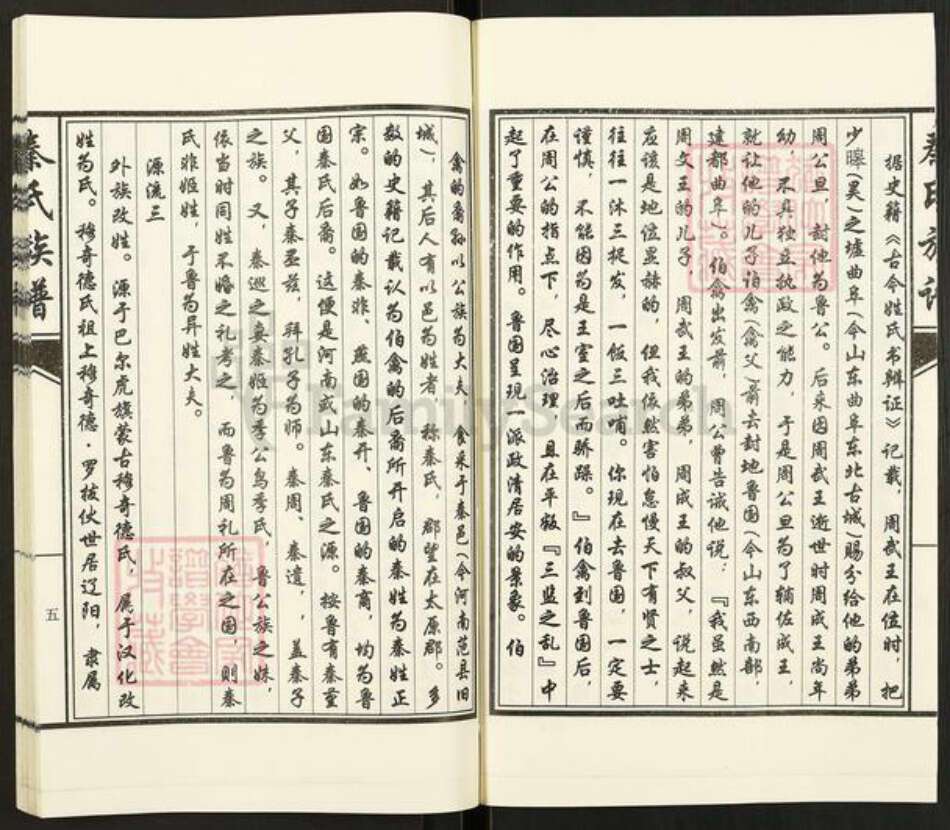 据史籍《古今姓氏书辩证》记载，周武王在位时，把
少皞(昊)之墟曲阜(今山东曲阜东北古城)赐分给他的弟弟
周公旦，封他为鲁公。后来因周武王逝世时周成王尚年
幼，不具独立执政之能力，于是周公旦为了辅佐成王，
就让他的儿子伯禽(禽父)前去封地鲁国(今山东西南部，
建都曲阜)。伯禽出发前，周公曾告诫他说：『我虽然是
周文王的儿子，周武王的弟弟，周成王的叔父，说起来
应该是地位显赫的，但我依然害怕怠慢天下有贤之士，
往往一沐三捉发，一饭三吐哺。你现在去鲁国，一定要
谨慎，不能因为是王室之后而骄躁。』伯禽到鲁国后，
在周公的指点下，尽心治理，且在平叛『三监之乱』中
起了重要的作用。鲁国呈现一派政清居安的景象。伯
秦氏族谱
禽的裔孙以公族为大夫，食采于秦邑(今河南范县旧
城)，其后人有以邑为姓者，称秦氏，郡望在太原郡。多
数的史籍记载认为伯禽的后裔所开启的秦姓为秦姓正
宗。如鲁国的秦非、燕国的秦开、鲁国的秦商，均为鲁
国秦氏后裔。这便是河南或山东秦氏之源。按鲁有秦堇
父，其子秦丕兹，拜孔子为师。秦周、秦遗，，盖秦子
之族。又，秦巡之妾秦姬为季公鸟季氏，鲁公族之妹，
依当时同姓不婚之礼考之，而鲁为周礼所在之国，则秦
氏非姬姓，于鲁为异姓大夫。
源流三
外族改姓。源于巴尔虎旗蒙古穆奇德氏，属于汉化改
姓为氏。穆奇德氏祖上穆奇德·罗拔伏世居辽阳，隶属
秦氏族谱
五
FamilySearch